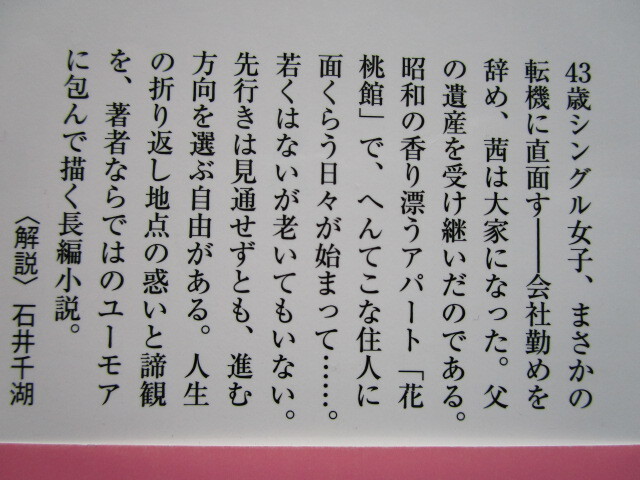 43歳シングル女子、まさかの
転機に直面す――会社勤めを
辞め、茜は大家になった。父
の遺産を受け継いだのである。
昭和の香り漂うアパート「花
桃館」で、へんてこな住人に
面くらう日々が始まって……。
若くはないが老いてもいない。
先行きは見通せずとも、進む
方向を選ぶ自由がある。人生
の折り返し地点の惑いと諦観
を、著者ならではのユーモア
に包んで描く長編小説。
〈解説〉石井千湖